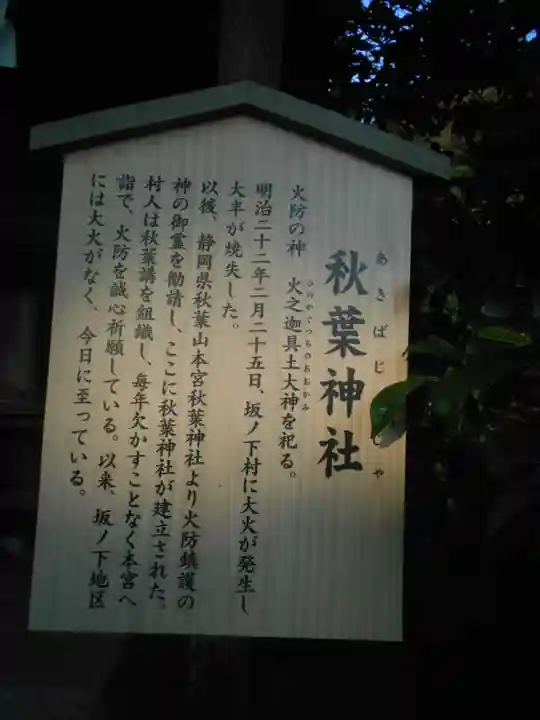 あきばじじや
秋葉神社
火防の神　火之迦具土大神を祀る。
ひのかぐつちのおおかみ
明治二十二年二月二十五日、坂ノ下村に大火が発生し
大半が焼失した。
以後、静岡県秋葉山本宮秋葉神社より火防鎮護の
神の御霊を勧請し、ここに秋葉神社が建立された。
村人は秋葉講を組織し、毎年欠かすことなく本宮へ
詣で、火防を誠心祈願している。以来、坂ノ下地区
には大火がなく、今日に至っている。